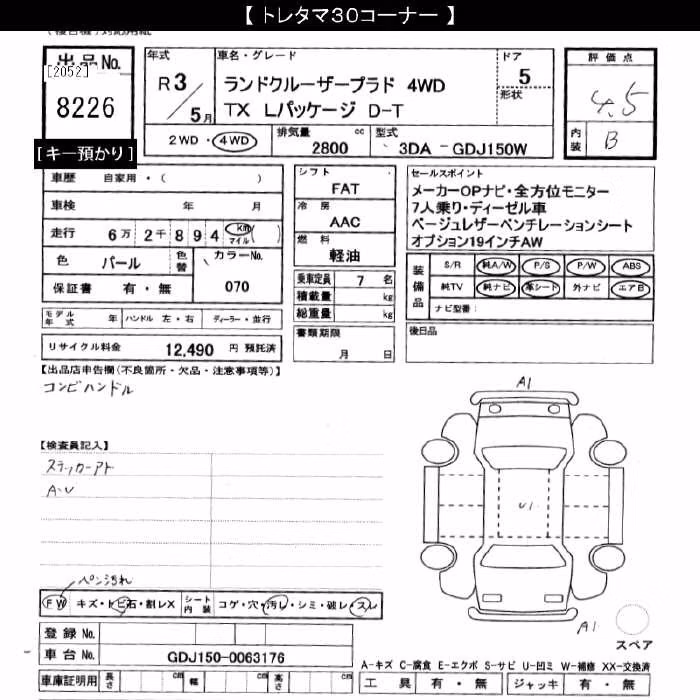 【 トレタマ30コーナー 】
出品No.
[2052]
8226
[キー預かり]
年式
R 3 / 5 月
車名・グレード
ランドクルーザープラド 4WD
TX Lパッケージ D-T
ドア
5
形状
2WD・4WD
排気量
2800 cc
型式
3DA - GDJ150W
評価点
4.5
内装
B
車歴 自家用・( )
車検 年 月
走行 6万 2千 8 9 4 Km マイル ( )
色 パール 色替 カラーNo.
070
保証書 有・無
モデル年式 年 ハンドル 左・右 ディーラー・並行
リサイクル料金 12,490 円 預託済
シフト
FAT
冷房
AAC
燃料
軽油
乗車定員 7 名
積載量 kg
総重量 kg
書類期限
月 日
セールスポイント
メーカーOPナビ・全方位モニター
7人乗り・ディーゼル車
ベージュレザーベンチレーションシート
オプション19インチAW
装備品
S/R 純A/W P/S P/W ABS
純TV 純ナビ 革シート 外ナビ エアB
ナビ型番:
後日品
【出品店申告欄(不良箇所・欠品・注意事項等)】
コンビハンドル
【検査員記入】
ステッカーアト
A-U
ペン汚れ
FW キズ・トビ石・割レX シート内装 コゲ・穴・汚レ・シミ・破レ・スレ
A1
U1
A1
スペア
登録 No.
車台 No. GDJ150-0063176
車庫証明用 長さ cm 幅 cm 高さ cm
A-キズ C-腐食 E-エクボ S-サビ U-凹ミ W-補修 XX-交換済
工具 有・無 ジャッキ 有・無